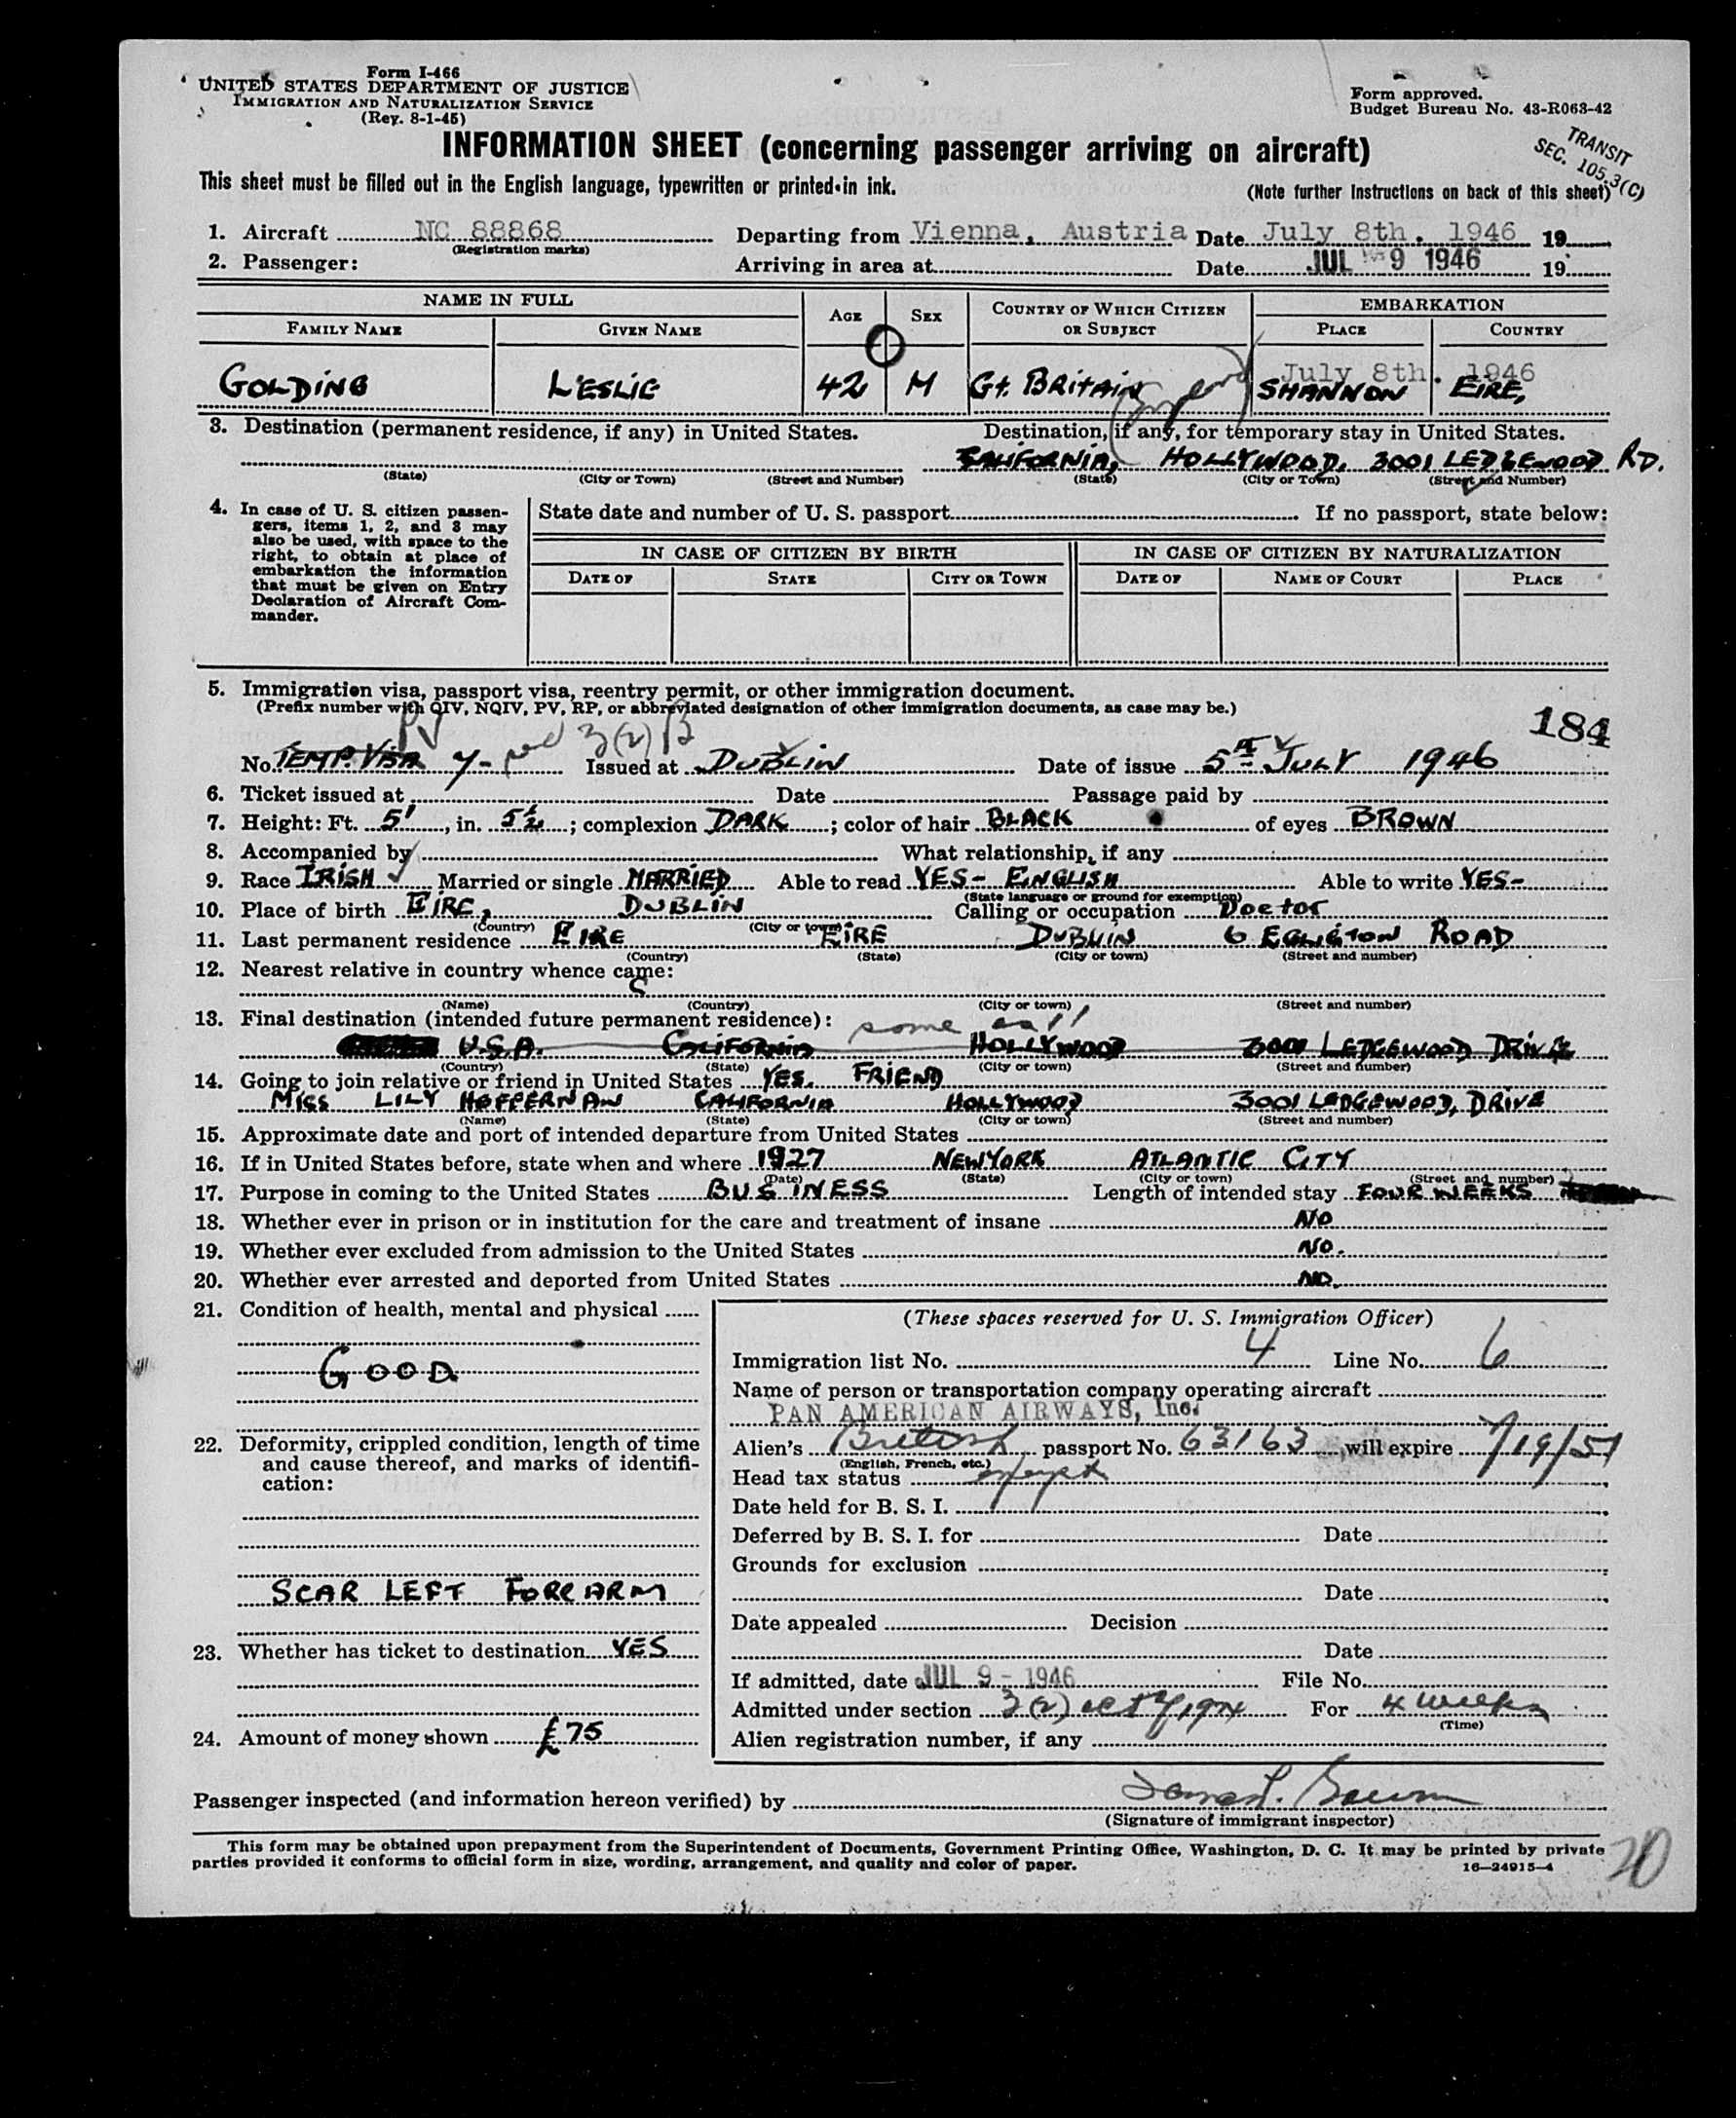 Form I-466
UNITED STATES DEPARTMENT OF JUSTICE
IMMIGRATION AND NATURALIZATION SERVICE
(Rev. 8-1-45)
Form approved.
Budget Bureau No. 43-R063-42
INFORMATION SHEET (concerning passenger arriving on aircraft)
TRANSIT
SEC. 105.3(C)
This sheet must be filled out in the English language, typewritten or printed in ink. (Note further instructions on back of this sheet)
1. Aircraft NC 88868 Departing from Vienna, Austria Date July 8th. 1946 19
(Registration marks)
2. Passenger: Arriving in area at Date JUL 9 1946 19
NAME IN FULL AGE SEX COUNTRY OF WHICH CITIZEN OR SUBJECT EMBARKATION
FAMILY NAME GIVEN NAME PLACE COUNTRY
July 8th. 1946
GOLDING LESLIE 42 M Gt. BRITAIN SHANNON EIRE,
3. Destination (permanent residence, if any) in United States. Destination, if any, for temporary stay in United States.
CALIFORNIA, HOLLYWOOD, 3001 LEDGEWOOD RD.
(State) (City or Town) (Street and Number) (State) (City or Town) (Street and Number)
4. In case of U. S. citizen passengers, items 1, 2, and 3 may also be used, with space to the right, to obtain at place of embarkation the information that must be given on Entry Declaration of Aircraft Commander.
State date and number of U. S. passport If no passport, state below:
IN CASE OF CITIZEN BY BIRTH IN CASE OF CITIZEN BY NATURALIZATION
DATE OF STATE CITY OR TOWN DATE OF NAME OF COURT PLACE
5. Immigration visa, passport visa, reentry permit, or other immigration document.
(Prefix number with QIV, NQIV, PV, RP, or abbreviated designation of other immigration documents, as case may be.)
184
PV 3(2) B
No. TEMP. VISA Issued at DUBLIN Date of issue 5th JULY 1946
6. Ticket issued at Date Passage paid by
7. Height: Ft. 5', in. 5½; complexion DARK; color of hair BLACK of eyes BROWN
8. Accompanied by What relationship, if any
9. Race IRISH Married or single MARRIED Able to read YES- ENGLISH Able to write YES-
(State language or ground for exemption)
10. Place of birth EIRE, DUBLIN Calling or occupation Doctor
(Country) (City or town)
11. Last permanent residence EIRE EIRE DUBLIN 6 EGLINTON ROAD
(Country) (State) (City or town) (Street and number)
12. Nearest relative in country whence came:
(Name) (Country) (City or town) (Street and number)
13. Final destination (intended future permanent residence):
U.S.A. CALIFORNIA HOLLYWOOD 3001 LEDGEWOOD DRIVE
(Country) (State) (City or town) (Street and number)
14. Going to join relative or friend in United States YES. FRIEND
MISS LILY HEFFERNAN CALIFORNIA HOLLYWOOD 3001 LEDGEWOOD, DRIVE
(Name) (State) (City or town) (Street and number)
15. Approximate date and port of intended departure from United States
16. If in United States before, state when and where 1927 NEW YORK ATLANTIC CITY
(Date) (State) (City or town) (Street and number)
17. Purpose in coming to the United States BUSINESS Length of intended stay FOUR WEEKS
18. Whether ever in prison or in institution for the care and treatment of insane NO
19. Whether ever excluded from admission to the United States NO.
20. Whether ever arrested and deported from United States NO.
21. Condition of health, mental and physical
GOOD
22. Deformity, crippled condition, length of time and cause thereof, and marks of identification:
SCAR LEFT FOREARM
23. Whether has ticket to destination YES
24. Amount of money shown £75
(These spaces reserved for U. S. Immigration Officer)
Immigration list No. 4 Line No. 6
Name of person or transportation company operating aircraft
PAN AMERICAN AIRWAYS, Inc.
Alien's British passport No. 63163 will expire 7/19/51
(English, French, etc.)
Head tax status exempt
Date held for B. S. I.
Deferred by B. S. I. for Date
Grounds for exclusion
Date
Date appealed Decision
Date
If admitted, date JUL 9 - 1946 File No.
Admitted under section 3(2) act of 1924 For 4 weeks
(Time)
Alien registration number, if any
Passenger inspected (and information hereon verified) by
(Signature of immigrant inspector)
This form may be obtained upon prepayment from the Superintendent of Documents, Government Printing Office, Washington, D. C. It may be printed by private
parties provided it conforms to official form in size, wording, arrangement, and quality and color of paper. 16—24915-4
20